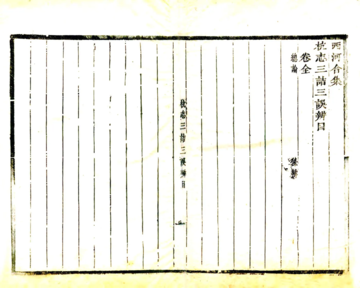 西河合集
杭志三詰三誤辨目
卷全
總論
杭志三詰三誤辨目